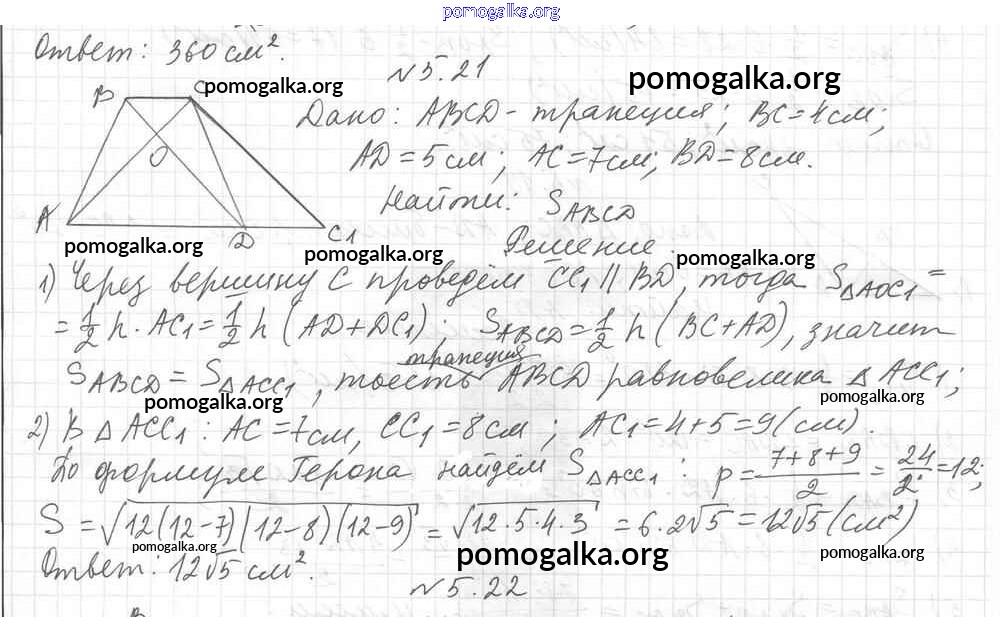 pomogalka.org
Ответ: 360 см².
№5.21
pomogalka.org
B C pomogalka.org
Дано: ABCD - трапеция; BC=4см;
O
AD=5см; AC=7см; BD=8см.
Найти: S ABCD
A D C1
pomogalka.org
Решение.
pomogalka.org pomogalka.org
1) Через вершину C проведём CC1 || BD, тогда S△ACC1 =
= 1/2 h · AC1 = 1/2 h (AD+DC1); S ABCD = 1/2 h (BC+AD), значит
трапеция
S ABCD = S△ACC1, тоесть ABCD равновелика △ACC1;
pomogalka.org pomogalka.org
2) В △ACC1: AC=7см, CC1=8см; AC1=4+5=9(см).
По формуле Герона найдём S△ACC1: p = (7+8+9)/2 = 24/2 = 12;
S = √(12(12-7)(12-8)(12-9)) = √(12·5·4·3) = 6·2√5 = 12√5 (см²)
pomogalka.org pomogalka.org pomogalka.org
Ответ: 12√5 см².
№5.22
B